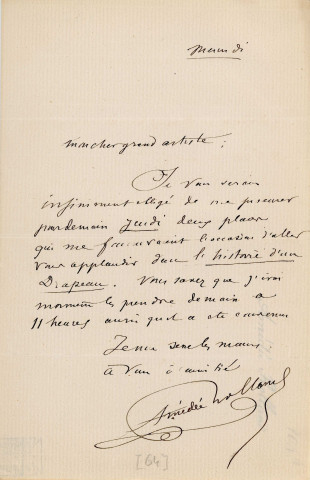 Mercredi
Mon cher grand artiste,
Je vous serais
infiniment obligé de me procurer
pour demain Jeudi deux places
qui me l'occasion d'aller
vous applaudir dans l'histoire d'un
Drapeau. Vous savez que j'irai
moi-même les prendre demain à
11 heures ainsi qu'il a été convenu
Je vous serre les mains
à vous d'amitié
Amédée Rolland
[64]